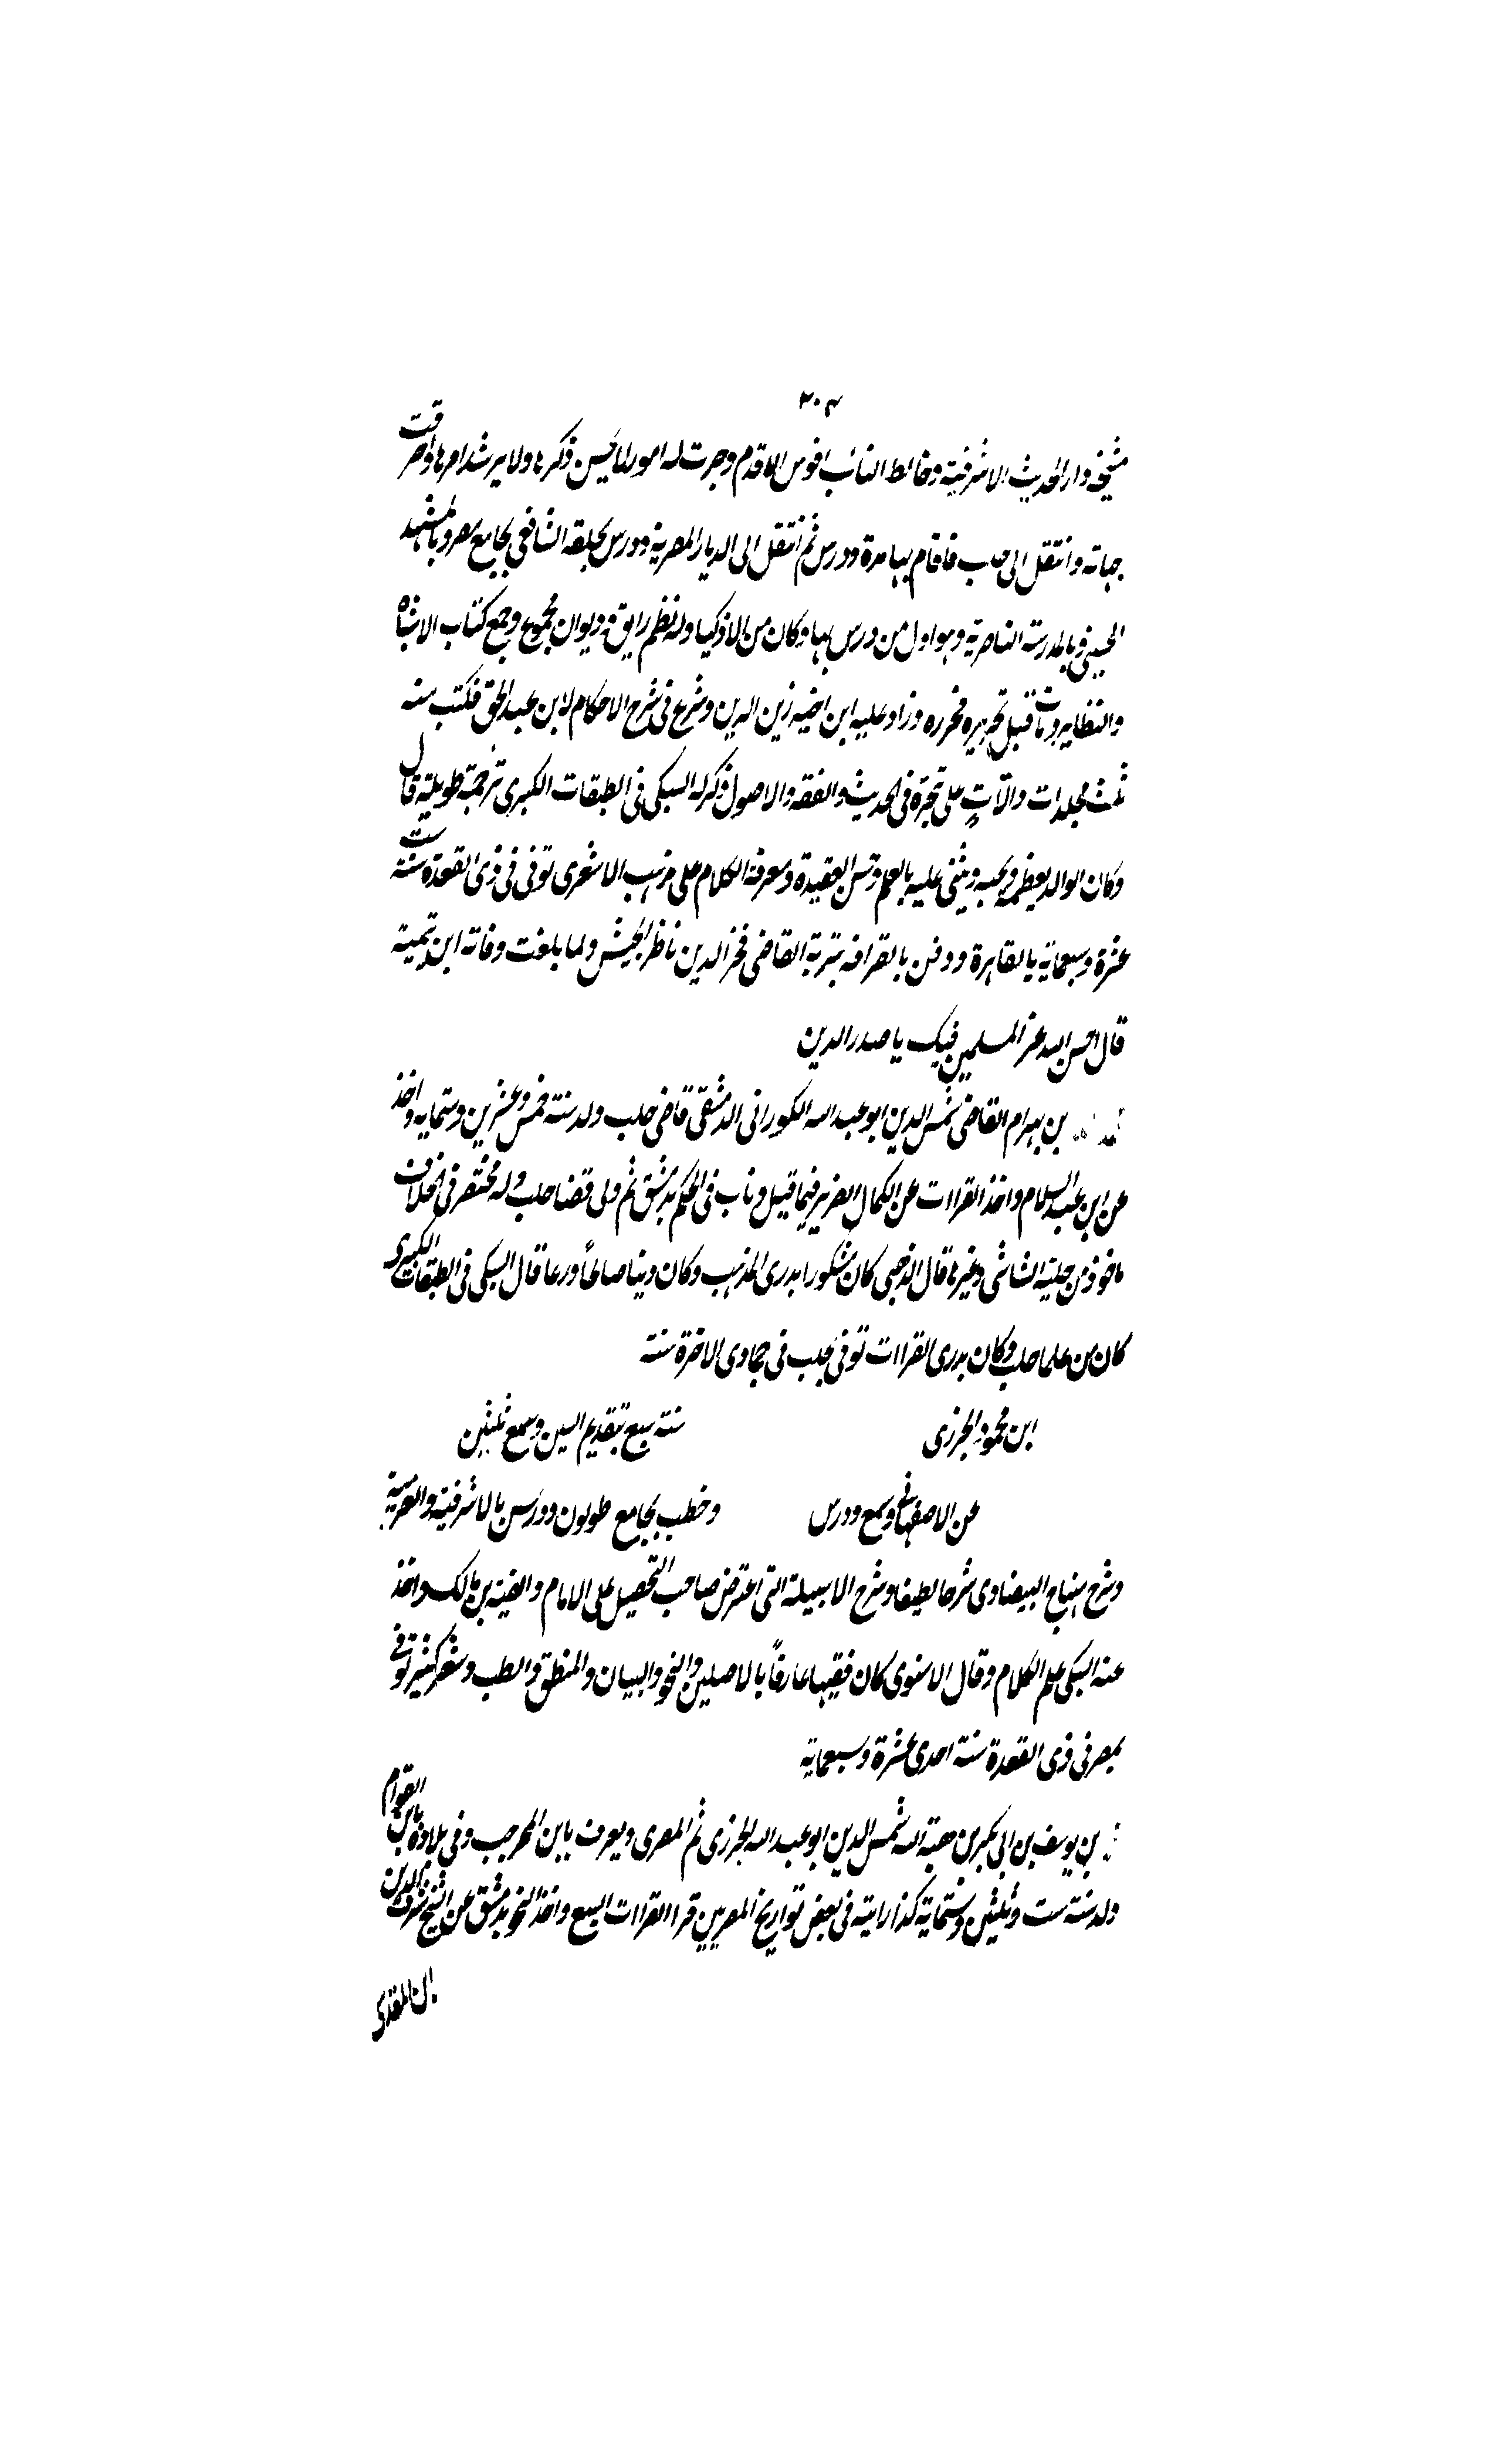 ٣٠٤
مشيخة دار الحديث الاشرفية وخالط النائب اقوس الاقدم وجرت له امور لا يحسن ذكرها ولا يرشد امرها واحرقت
جهاته وانتقل الى حلب فاقام بها مدة ودرس ثم انتقل الى الديار المصرية ودرس بحلقة الشافعي بجامع مصر وبالمشهد
الحسيني وبالمدرسة الناصرية وهو اول من درس بها وكان من الاذكيا وله نظم رايق وديوان مجموع وجمع كتاب الاشباه
والنظاير ومات قبل تحريره فحرره وزاد عليه ابن اخيه زين الدين وشرع في شرح الاحكام لابن عبد الحق فكتب منه
ثلث مجلدات دالات على تبحره في الحديث والفقه والاصول ذكر له السبكي في الطبقات الكبرى ترجمة طويلة قال
وكان الوالد يعظمه ويحبه ويثني عليه بالعلم وحسن العقيدة ومعرفة الكلام على مذهب الاشعرى توفى في ذى القعدة سنة ست
عشرة وسبعماية بالقاهرة ودفن بالقرافة بتربة القاضى فخر الدين ناظر الجيش ولما بلغت وفاته ابن تيمية
قال احسن الله عز المسلمين فيك يا صدر الدين
محمد بن بهرام القاضى شمس الدين ابو عبد الله الكورانى الدمشقى قاضى حلب ولد سنة خمس وعشرين وستماية واخذ
عن ابن عبد السلام واخذ القراات عن الكمال الضرير فيما قيل وناب في الحكم بدمشق ثم ولى قضا حلب وله مختصر في الخلاف
ماخوذ من حلية الشاشى وغيرها قال الذهبى كان مشكورا يدرى المذهب وكان دينا صالحاً ورعا قال السبكى فى الطبقات الكبرى
كان من علما حلب وكان يدرى القراات توفى بحلب فى جمادى الاخرة سنة
ابن محمود الجزرى سنة سبع بتقديم السين وسمع ثلثين
عن الاصفهانى وسمع ودرس وخطب بجامع طولون ودرس بالاشرفية والعربية
وشرح منهاج البيضاوى شرحا لطيفا وشرح الاسيلة التى اعترض صاحب التحصيل على الامام والفية بن مالك واخذ
عنه السبكى علم الكلام وقال الاسنوى كان فقيها عارفاً بالاصلين والنحو والبيان والمنطق والطب وشعر كثير توفى
بمصر فى ذى القعدة سنة احدى عشرة وسبعماية
بن يوسف بن ابى بكر بن هبة الله شمس الدين ابو عبد الله الجزرى ثم المصرى ويعرف بابن المحرجب وفى بلاده بابن القوام
ولد سنة ست وثلثين وستماية كذا رايته فى بعض تواريخ المصريين قرا القراات السبع واخذ النحو بدمشق عن الشيخ شرف الدين
ابن المقدسى